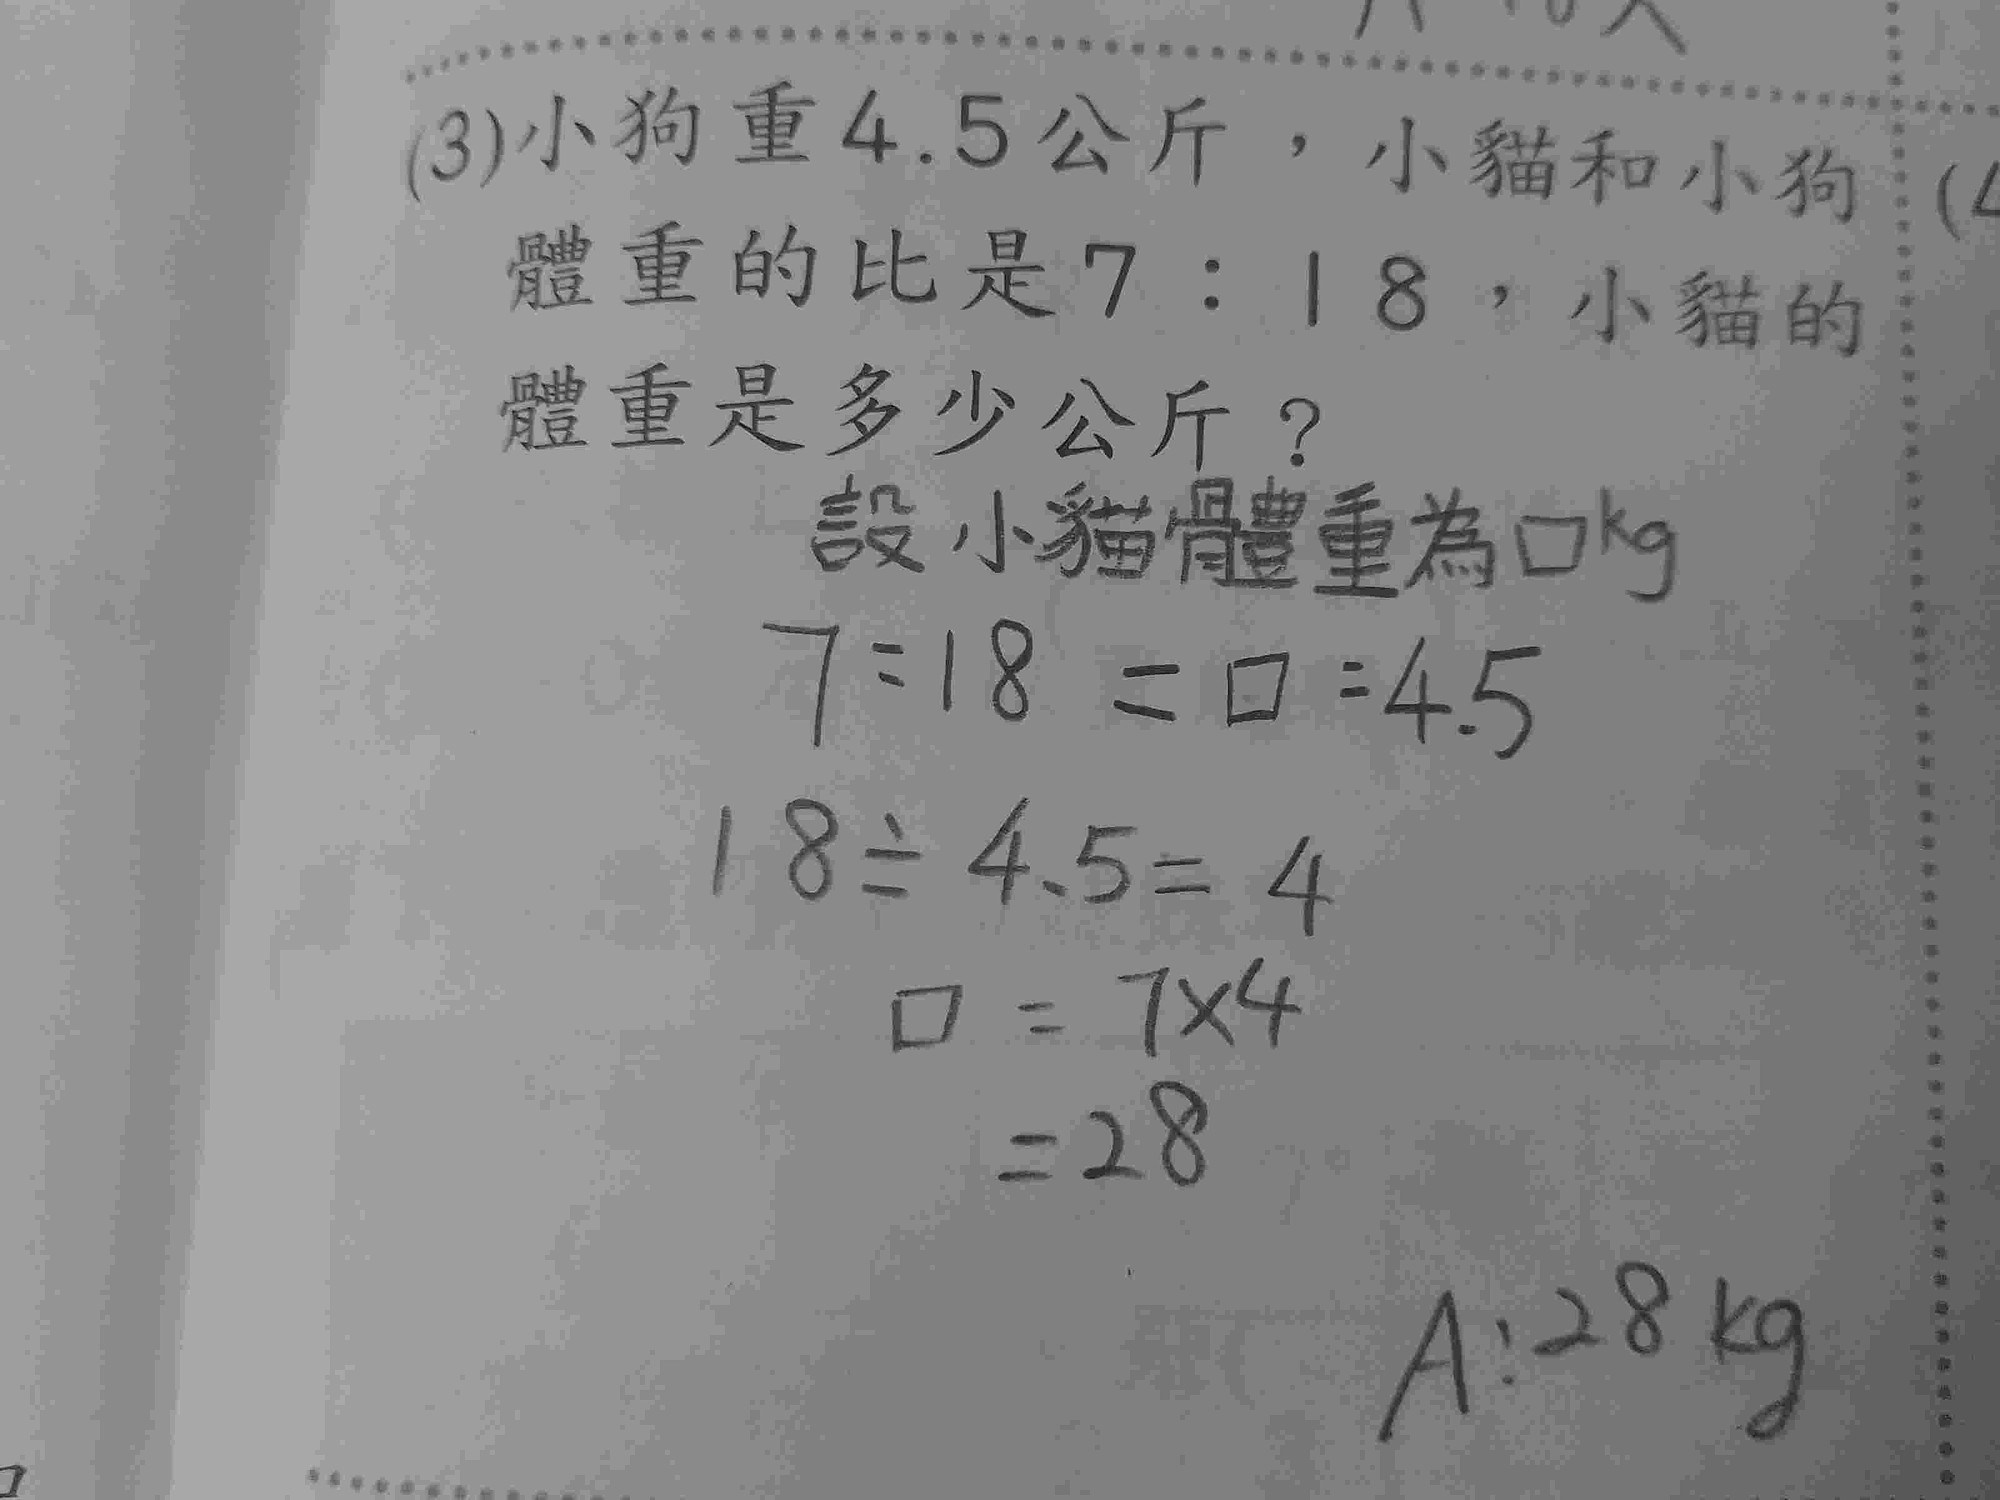 (3)小狗重4.5公斤，小貓和小狗
體重的比是7：18，小貓的
體重是多少公斤？
設小貓體重為□kg
7:18=□:4.5
18÷4.5=4
□=7×4
=28
A:28kg
(4